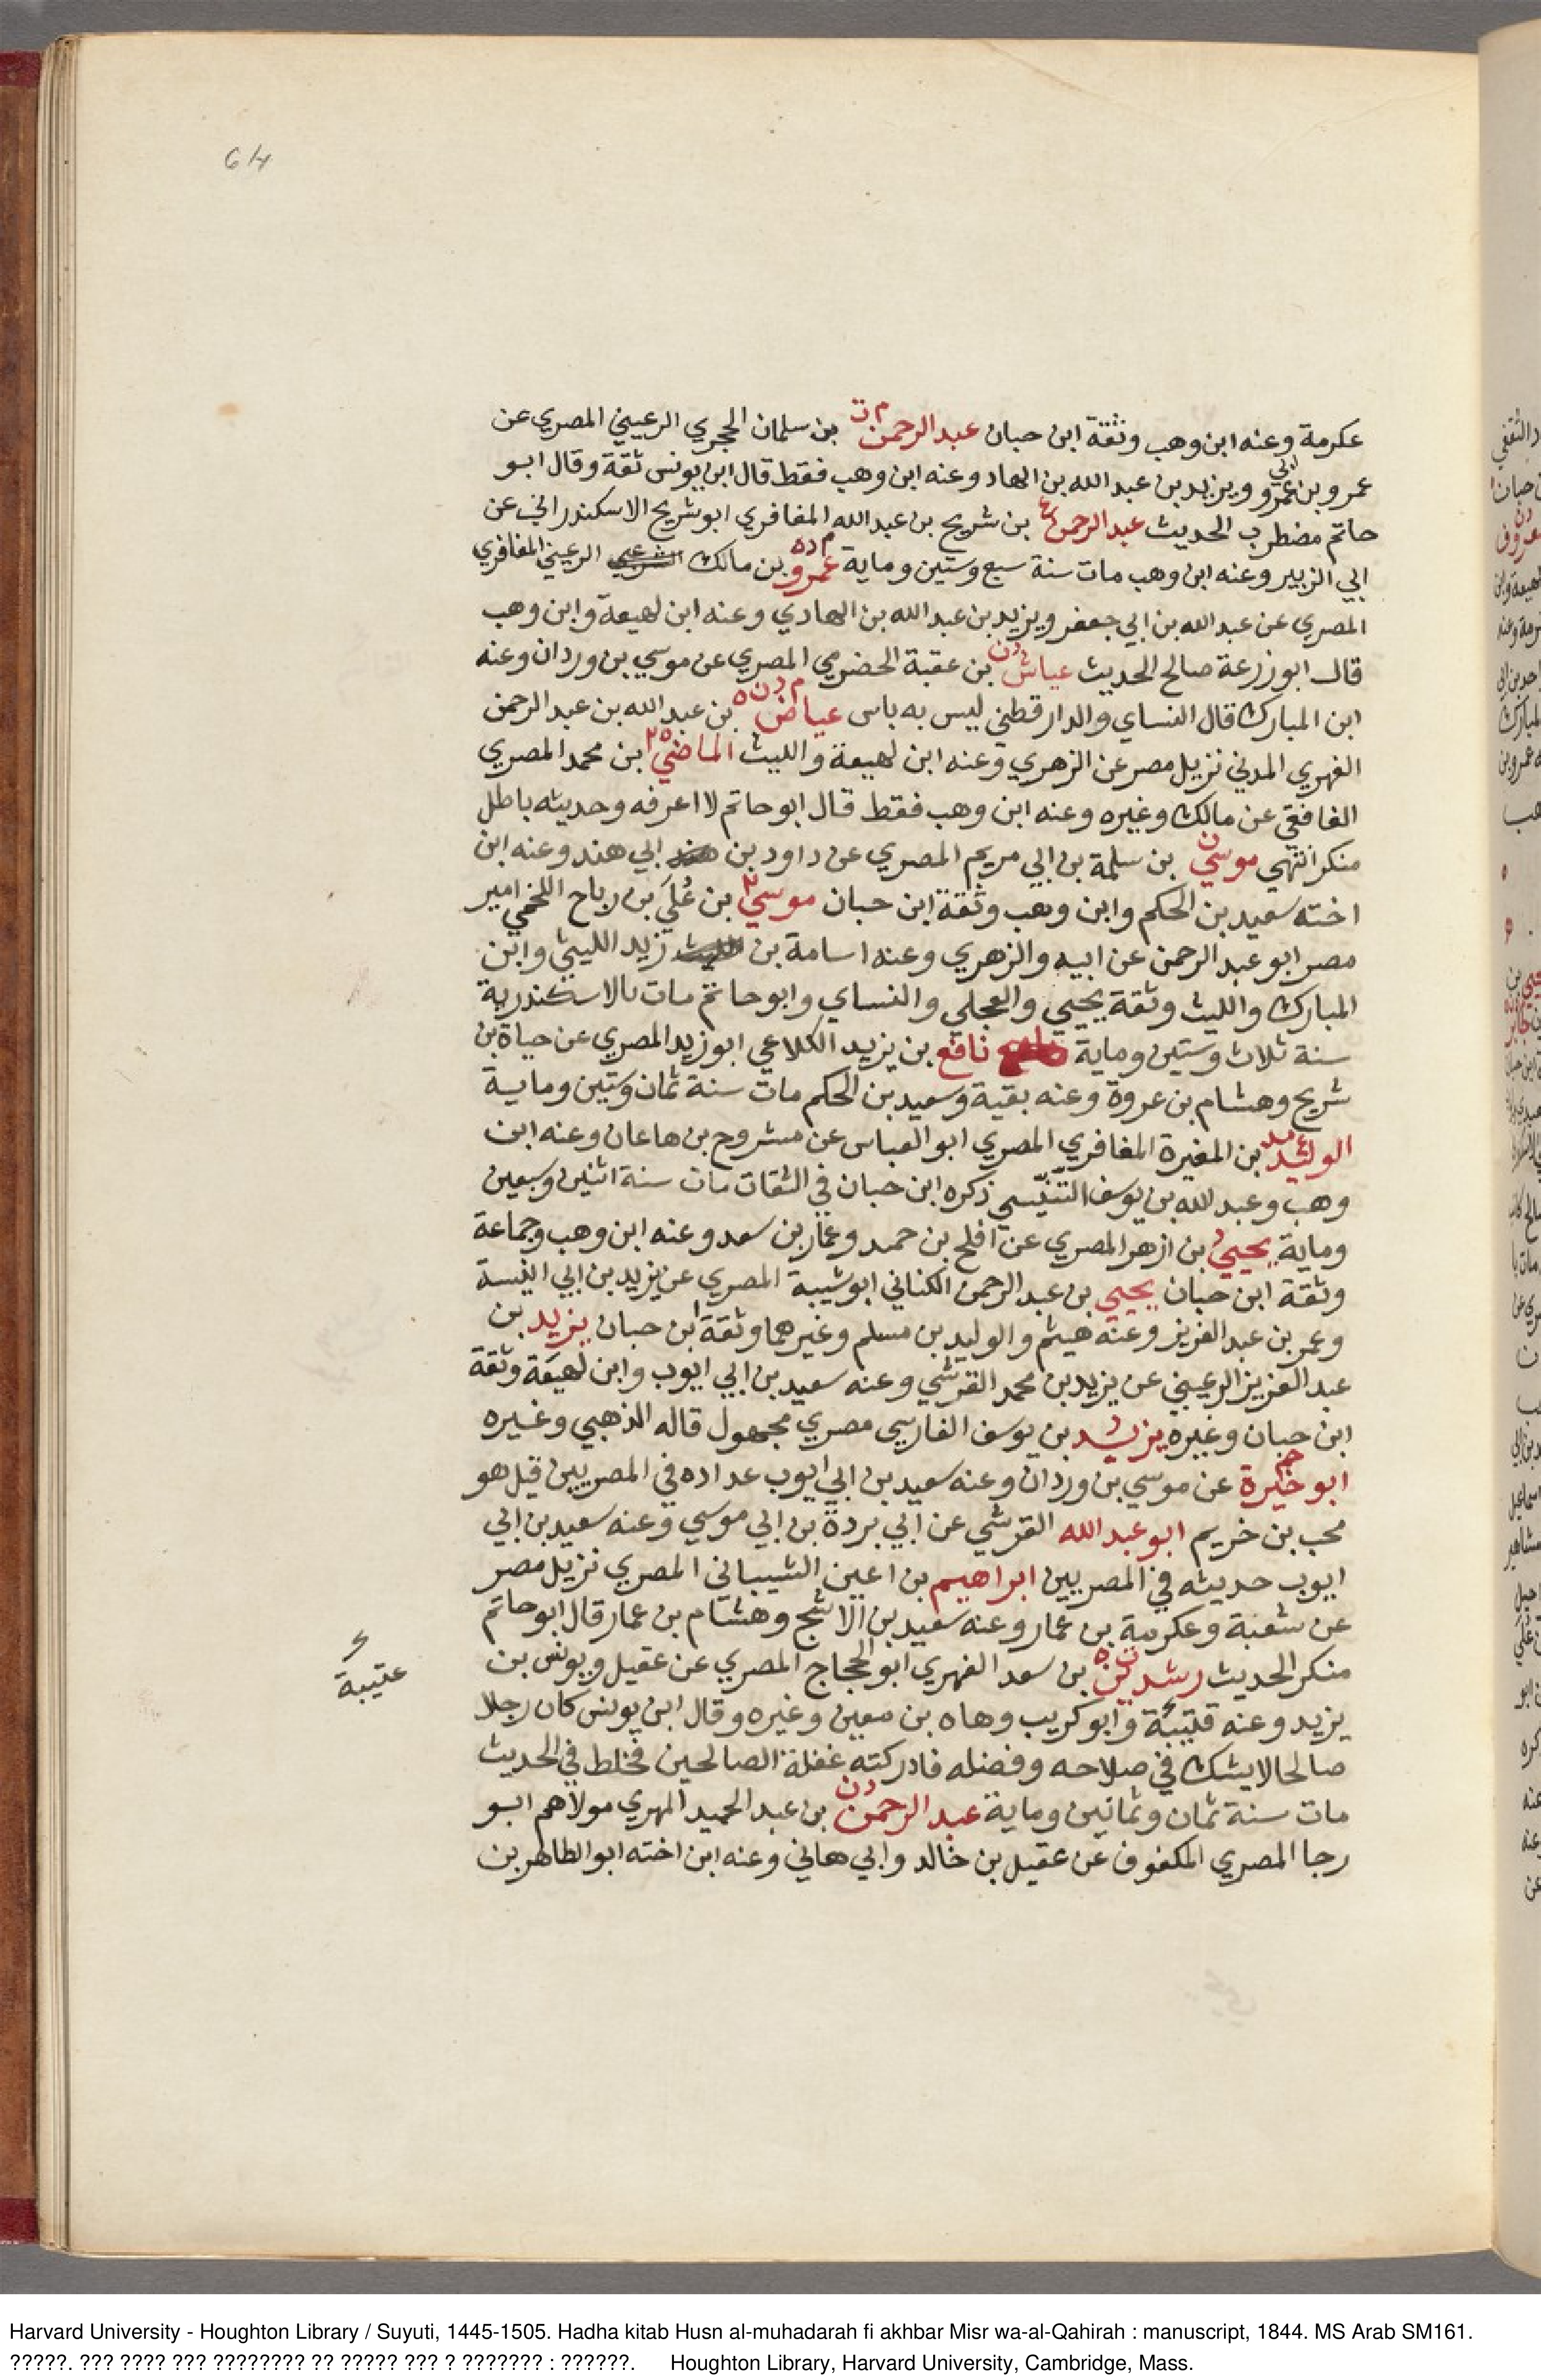 614
عكرمة وعنه ابن وهب وثقة ابن حبان عبد الرحمن م ت بن سلمان الحجري الرعيني المصري عن
عمرو بن ابي عمرو ويزيد بن عبد الله بن الهاد وعنه ابن وهب فقط قال ابن يونس ثقة وقال ابو
حاتم مضطرب الحديث عبد الرحمن ع بن شريح بن عبد الله المغافري ابو شريح الاسكندراني عن
ابي الزبير وعنه ابن وهب مات سنة سبع وستين وماية عمرو م د ه بن مالك الشرعبي الرعيني المغافري
المصري عن عبد الله بن ابي جعفر ويزيد بن عبد الله بن الهادي وعنه ابن لهيعة وابن وهب
قال ابو زرعة صالح الحديث عياش د ن بن عقبة الحضرمي المصري عن موسي بن وردان وعنه
ابن المبارك قال النساي والدارقطني ليس به باس عياض م د ن ه بن عبد الله بن عبد الرحمن
الفهري المدني نزيل مصر عن الزهري وعنه ابن لهيعة والليث الماضي بن محمد المصري
الغافقي عن مالك وغيره وعنه ابن وهب فقط قال ابو حاتم لا اعرفه وحديثه باطل
منكر انتهي موسي ن بن سلمة بن ابي مريم المصري عن داود بن هند ابي هند وعنه ابن
اخته سعيد بن الحكم وابن وهب وثقة ابن حبان موسي بن عُلَي بن رباح اللخمي امير
مصر ابو عبد الرحمن عن ابيه والزهري وعنه اسامة بن زيد الليثي وابن
المبارك والليث وثقة يحيي والعجلي والنساي وابو حاتم مات بالاسكندرية
سنة ثلاث وستين وماية نافع بن يزيد الكلاعي ابو زيد المصري عن حياة بن
شريح وهشام بن عروة وعنه بقية وسعيد بن الحكم مات سنة ثمان وستين وماية
الوليد بن المغيرة المغافري المصري ابو العباس عن مشروح بن هاعان وعنه ابن
وهب وعبد الله بن يوسف التنّيسي ذكره ابن حبان في الثقات مات سنة اثنين وسبعين
وماية يحيي بن ازهر المصري عن افلح بن حميد وعمار بن سعد وعنه ابن وهب وجماعة
وثقة ابن حبان يحيي بن عبد الرحمن الكناني ابو شيبة المصري عن يزيد بن ابي انيسة
وعمر بن عبد العزيز وعنه هيثم والوليد بن مسلم وغيرهما وثقة ابن حبان يزيد بن
عبد العزيز الرعيني عن يزيد بن محمد القرشي وعنه سعيد بن ابي ايوب وابن لهيعة وثقة
ابن حبان وغيره يزيد د بن يوسف الفارسي مصري مجهول قاله الذهبي وغيره
ابو خيرة عن موسي بن وردان وعنه سعيد بن ابي ايوب عداده في المصريين قيل هو
محب بن خريم ابو عبد الله القرشي عن ابي بردة بن ابي موسي وعنه سعيد بن ابي
ايوب حديثه في المصريين ابراهيم بن اعين الشيباني المصري نزيل مصر
عن شعبة وعكرمة بن عمار وعنه سعيد بن الاشج وهشام بن عمار قال ابو حاتم
منكر الحديث رشدين ت ه بن سعد الفهري ابو الحجاج المصري عن عقيل ويونس بن
يزيد وعنه قتيبة وابو كريب وهاه بن معين وغيره وقال ابن يونس كان رجلا
صالحا لا يشك في صلاحه وفضله فادركته غفلة الصالحين فخلط في الحديث
مات سنة ثمان وثمانين وماية عبد الرحمن د ن بن عبد الحميد المهري مولاهم ابو
رجا المصري المكفوف عن عقيل بن خالد وابي هاني وعنه ابن اخته ابو الطاهر بن
عتيبة
Harvard University - Houghton Library / Suyuti, 1445-1505. Hadha kitab Husn al-muhadarah fi akhbar Misr wa-al-Qahirah : manuscript, 1844. MS Arab SM161.
?????. ??? ???? ??? ???????? ?? ????? ??? ? ??????? : ??????. Houghton Library, Harvard University, Cambridge, Mass.